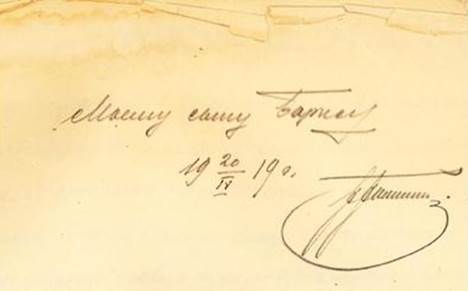 Моему сыну Борису
19 20/IV 19 г.